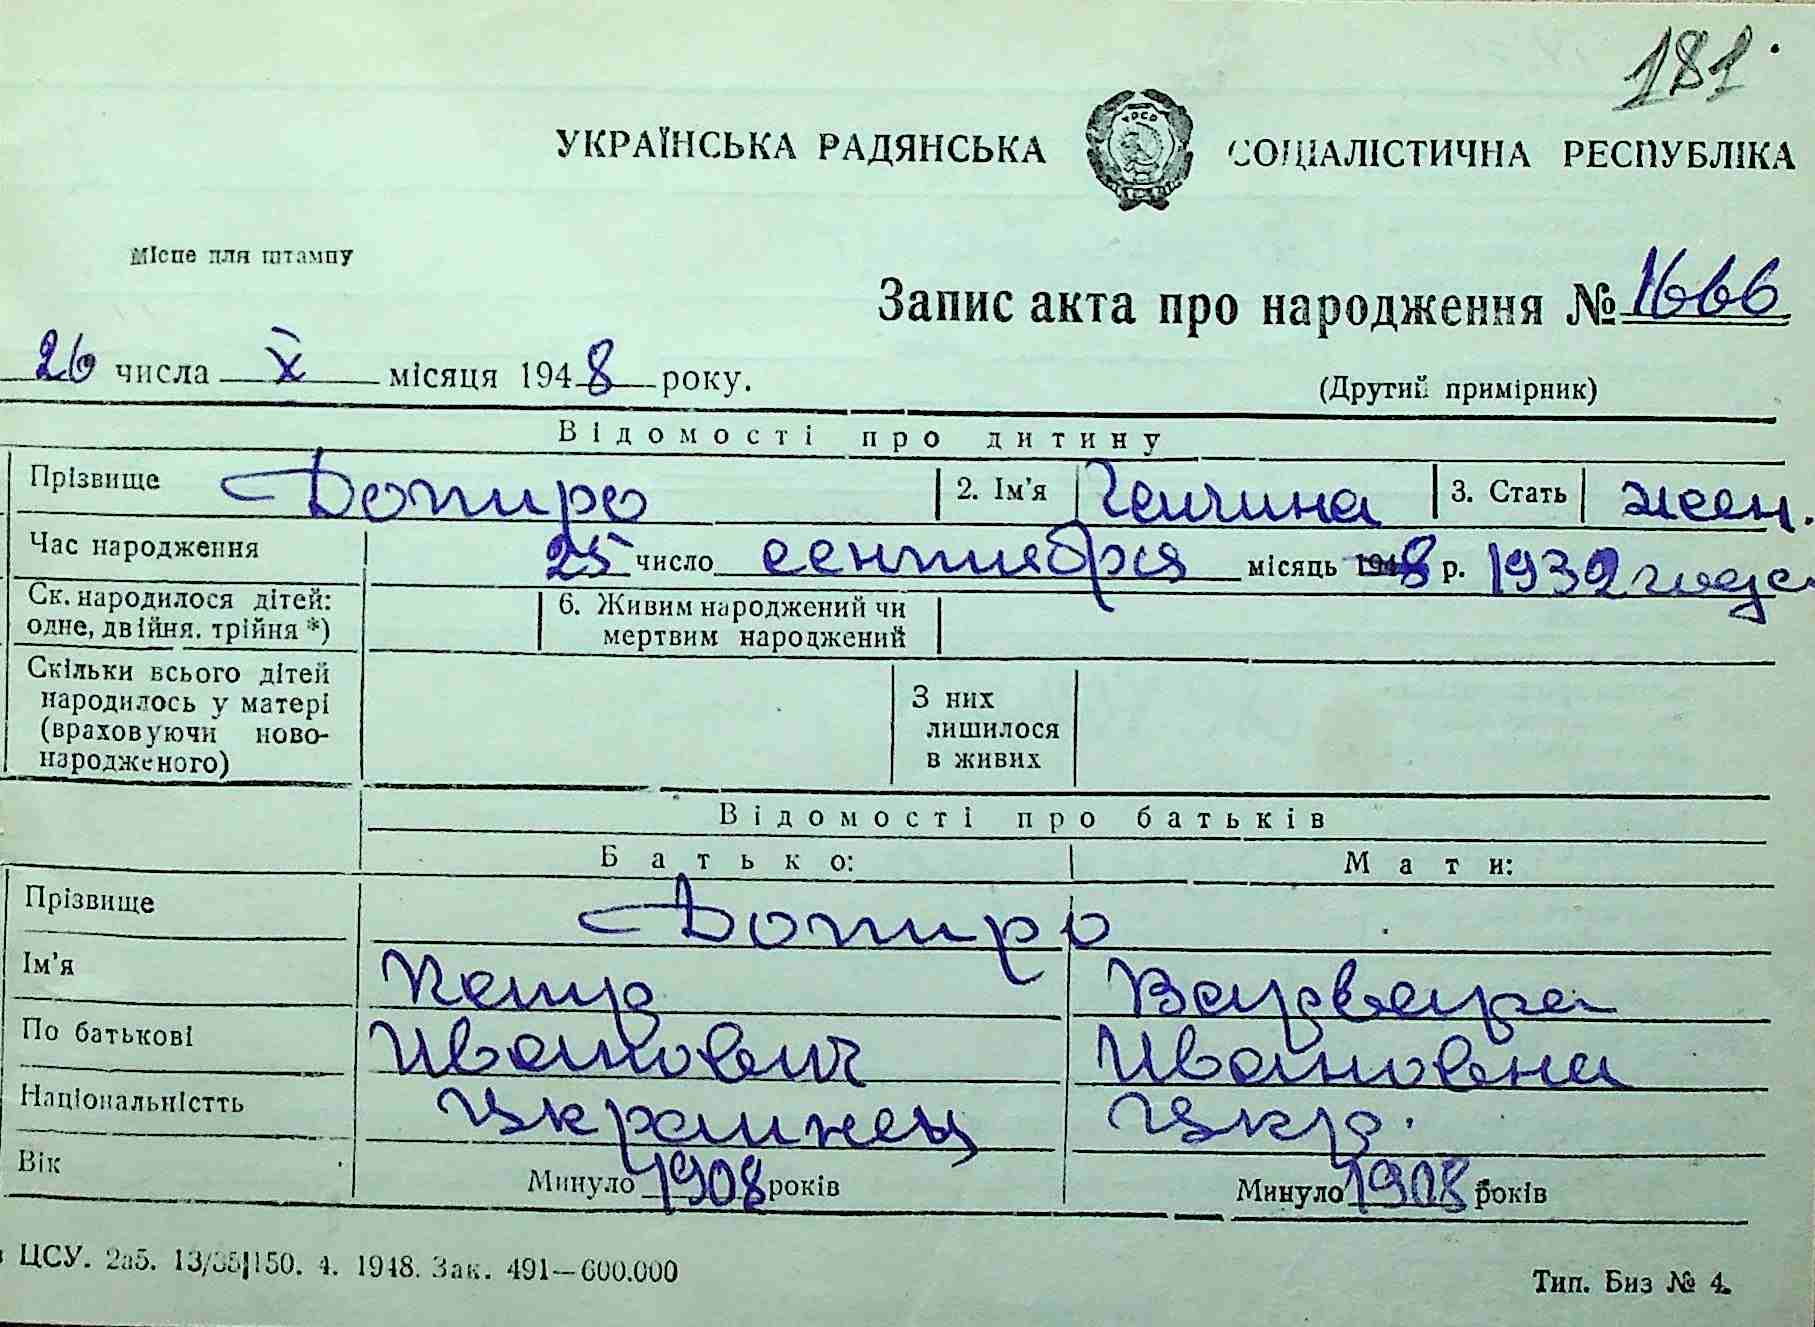 181.
УКРАЇНСЬКА РАДЯНСЬКА СОЦІАЛІСТИЧНА РЕСПУБЛІКА
Місце для штампу
Запис акта про народження № 1666
26 числа X місяця 1948 року.
(Другий примірник)
Відомості про дитину
Прізвище Допиро 2. Ім'я Галина 3. Стать жен.
Час народження 25 число сентября місяць 1948 р. 1932 года
Ск. народилося дітей: одне, двійня, трійня *) 6. Живим народжений чи мертвим народжений
Скільки всього дітей народилось у матері (враховуючи ново-народженого) З них лишилося в живих
Відомості про батьків
Батько: Мати:
Прізвище Допиро
Ім'я Петр Варвара
По батькові Иванович Ивановна
Національністть Украинец Укр.
Вік Минуло 1908 років Минуло 1908 років
ЦСУ. 2аб. 13/35|150. 4. 1948. Зак. 491—600.000
Тип. Биз № 4.